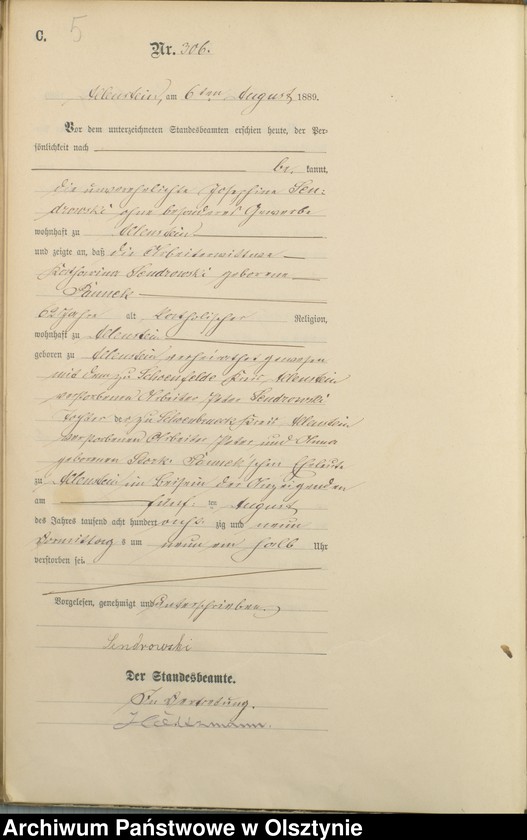 C.
5
Nr. 306.
Allenstein, am 6ten August 1889.
Vor dem unterzeichneten Standesbeamten erschien heute, der Per-
sönlichkeit nach
be kannt,
die unverehelichte Josephine Sen-
drowski ohne besonderes Gewerbe
wohnhaft zu Allenstein
und zeigte an, daß die Arbeiterwittwe
Katharina Sendrowski geborene
62 Jahre alt, katholischer Religion,
wohnhaft zu Allenstein
geboren zu Allenstein, verheirathet gewesen
mit dem zu Schoenfelde Kreis Allenstein
verstorbenen Arbeiter Peter Sendrowski
Tochter der zu Schoenbrueck Kreis Allenstein
verstorbenen Arbeiter Peter und Anna
geborenen Eheleute
zu Allenstein im Beisein der Anzeigenden
am fünften August
des Jahres tausend acht hundert acht zig und neun
Vormittags um neun ein halb Uhr
verstorben sei.
Vorgelesen, genehmigt und unterschrieben
Sendrowski
Der Standesbeamte.
In Vertretung.
Archiwum Państwowe w Olsztynie